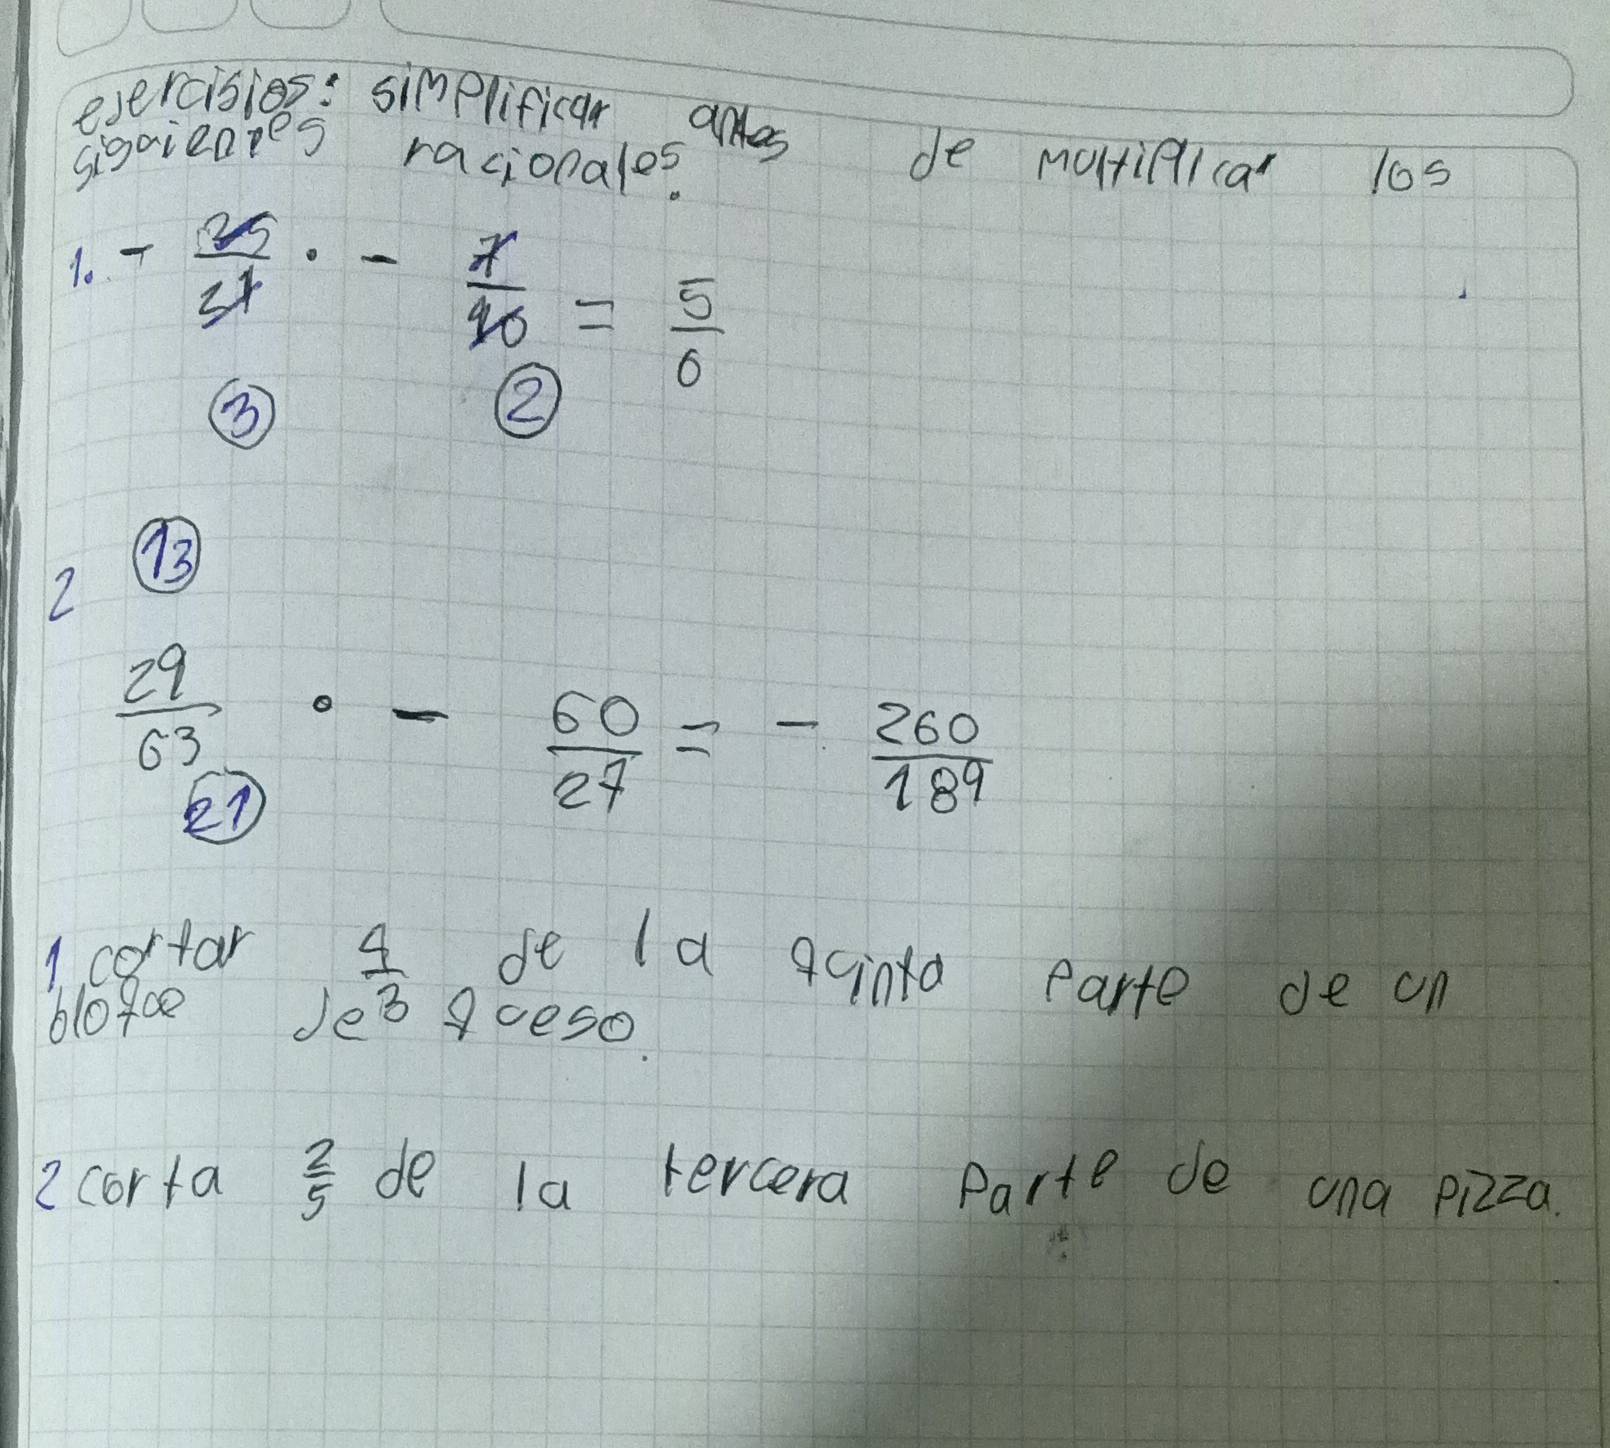 ejercisios: simplificar antes de multiplicar los
siguientes racionales.
1. - 25/31 . - 7/10 = 5/6
3 2
13
2
29/63 . - 60/27 = - 260/189
21
1 cortar 4/3 de la quinta parte de un
bloque de queso.
2 corta 2/5 de la tercera parte de una pizza.